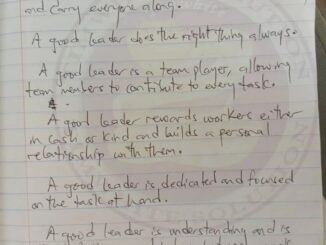 and carry everyone along.
A good leader does the right thing always.
A good leader is a team player, allowing
team members to contribute to every task.
A good leader rewards workers either
in cash or kind and builds a personal
relationship with them.
A good leader is dedicated and focused
on the task at hand.
A good leader is understanding and is